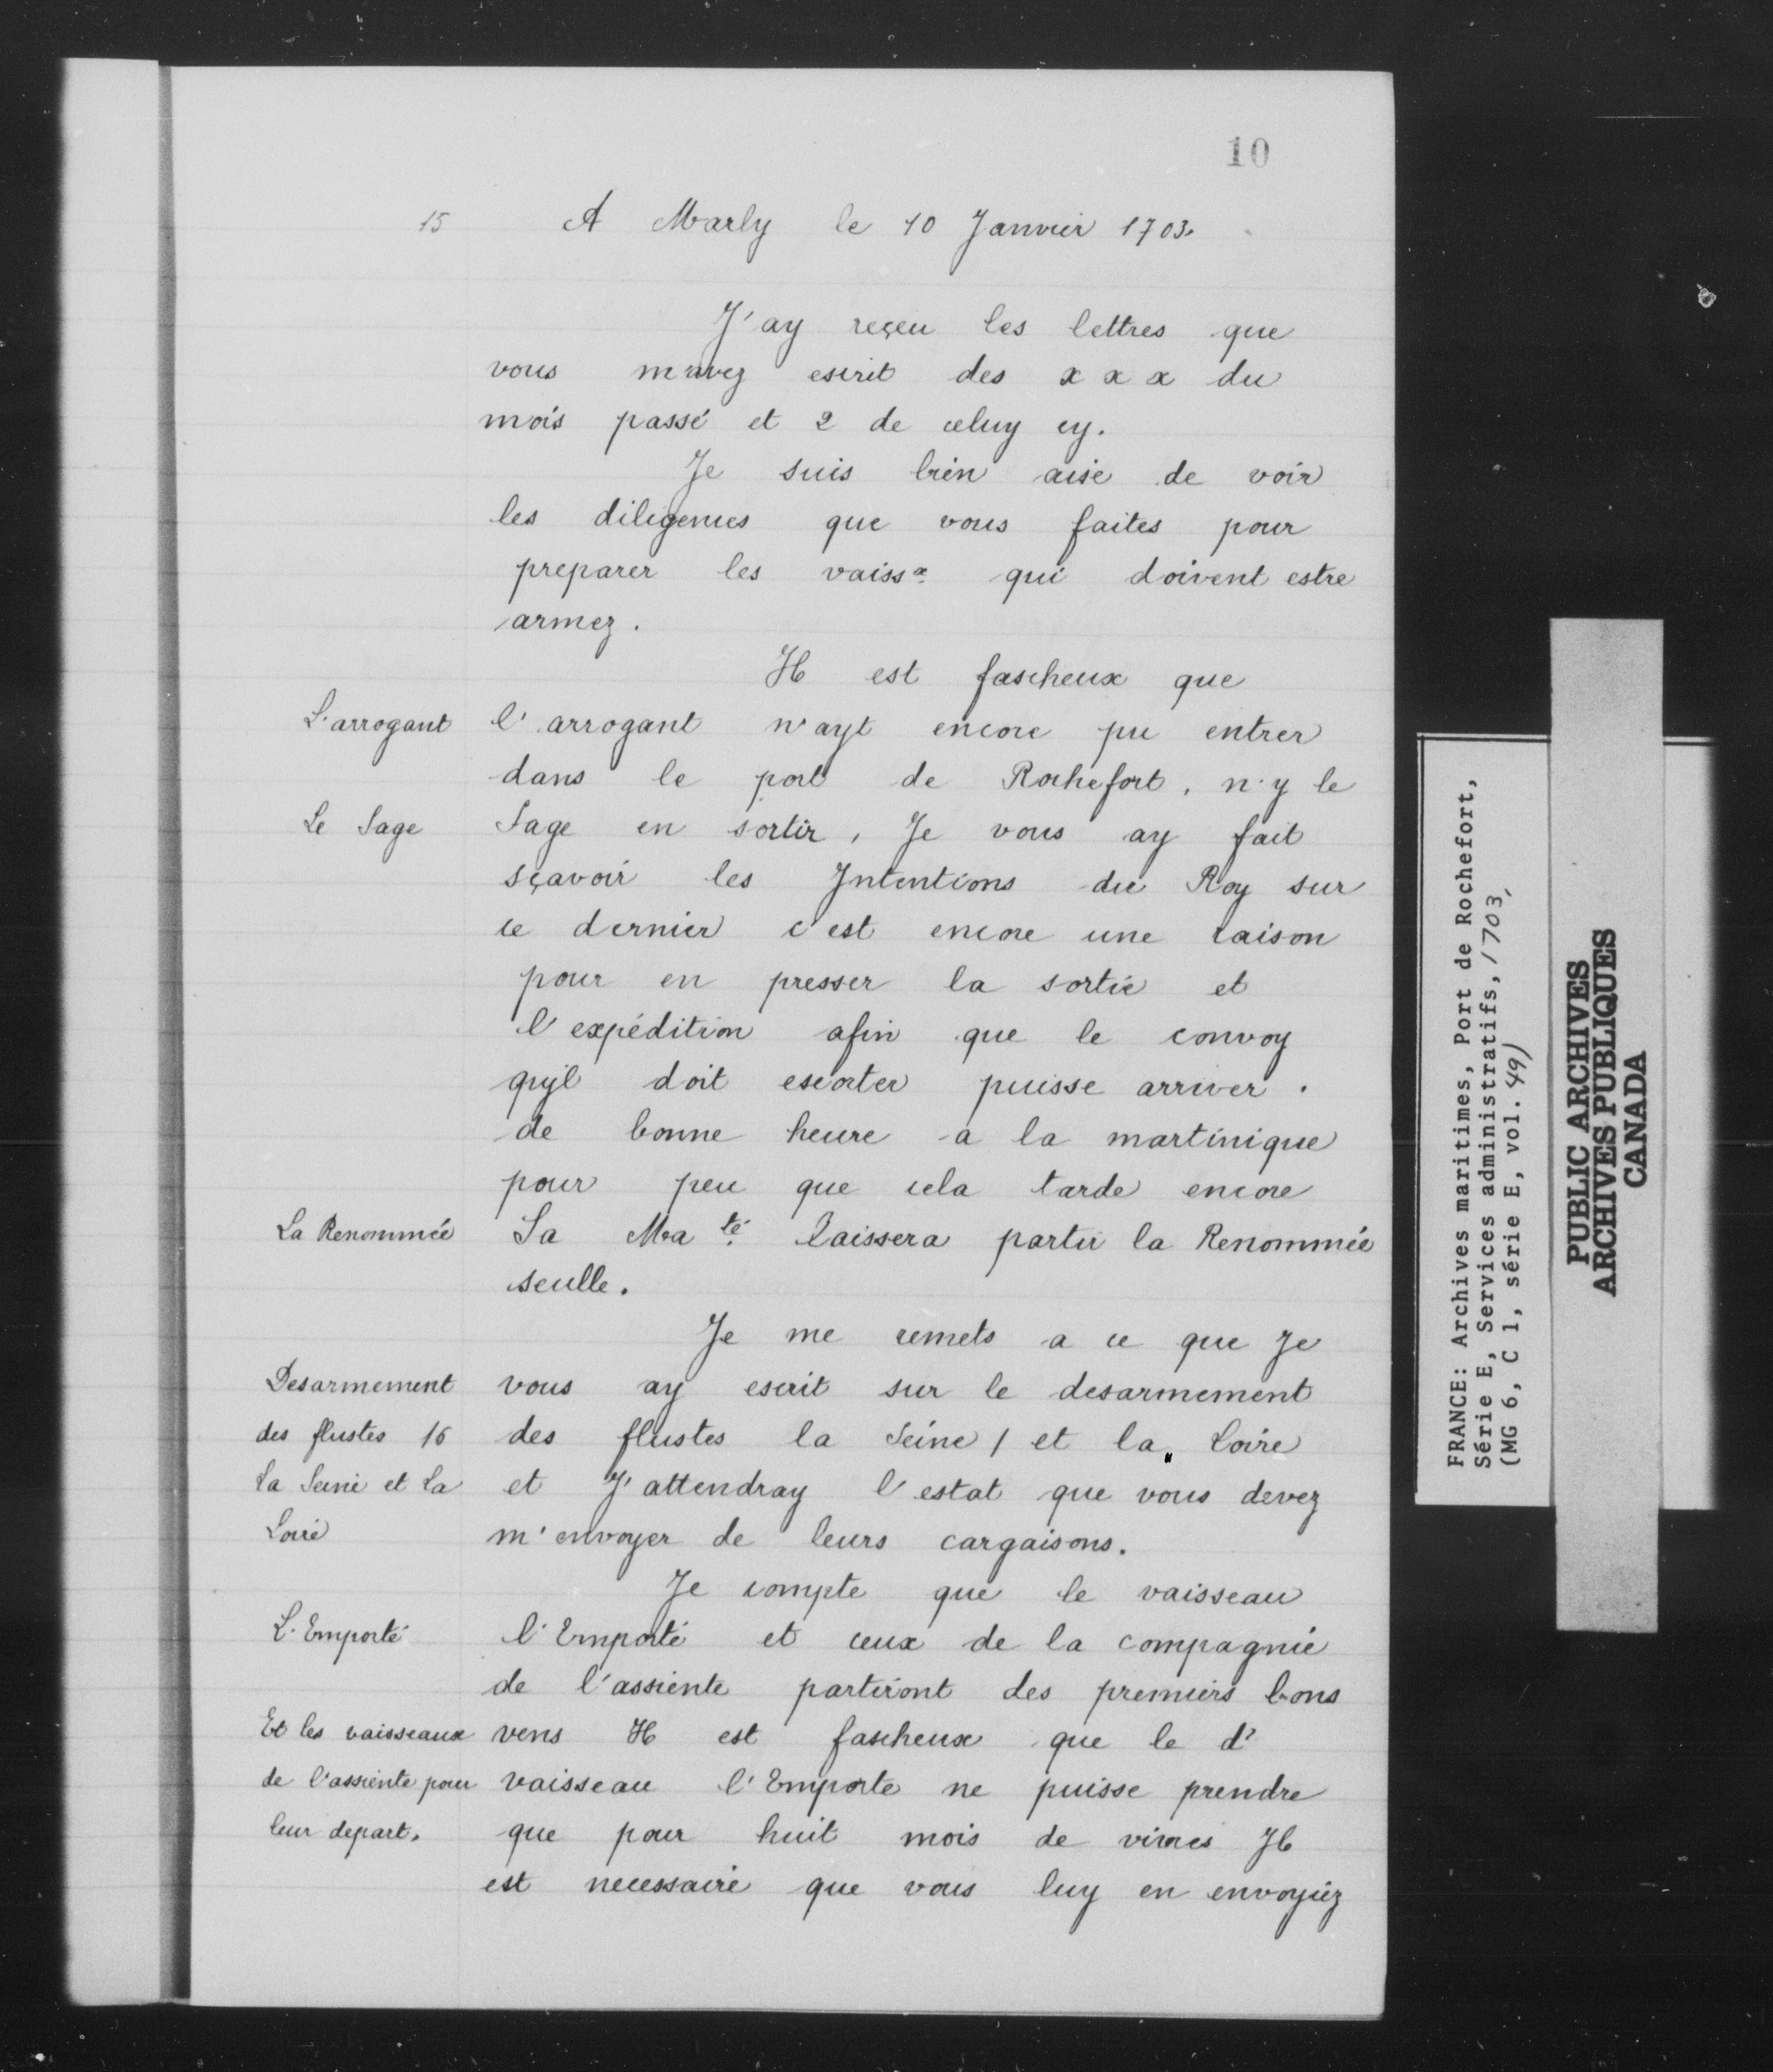 10
15 A Marly le 10 Janvier 1703.
J'ay reçeu les lettres que
vous m'avez escrit des x x x du
mois passé et 2 de celuy cy.
Je suis bien aise de voir
les diligences que vous faites pour
preparer les vaissx qui doivent estre
armez.
Il est fascheux que
L'arrogant l'arrogant n'ayt encore pu entrer
dans le port de Rochefort, n'y le
Le Sage Sage en sortir, Je vous ay fait
sçavoir les Intentions du Roy sur
ce dernier c'est encore une raison
pour en presser la sortie et
l'expédition afin que le convoy
qu'il doit escorter puisse arriver.
de bonne heure a la martinique
pour peu que cela tarde encore
La Renommée Sa Maté laissera partir la Renommée
seulle.
Je me remets a ce que Je
Desarmement vous ay escrit sur le desarmement
des flustes 16 des flustes la Seine / et la Loire
La Seine et La et J'attendray l'estat que vous devez
Loire m'envoyer de leurs cargaisons.
Je compte que le vaisseau
L'Emporté l'Emporté et ceux de la compagnie
de l'assiente partiront des premiers bons
Et les vaisseaux vens Il est fascheux que le dt
de l'assiente pour vaisseau l'Emporte ne puisse prendre
leur depart. que pour huit mois de vivres Il
est necessaire que vous luy en envoyiez
FRANCE: Archives maritimes, Port de Rochefort,
Série E, Services administratifs, 1703,
(MG 6, C 1, série E, vol. 49)
PUBLIC ARCHIVES
ARCHIVES PUBLIQUES
CANADA